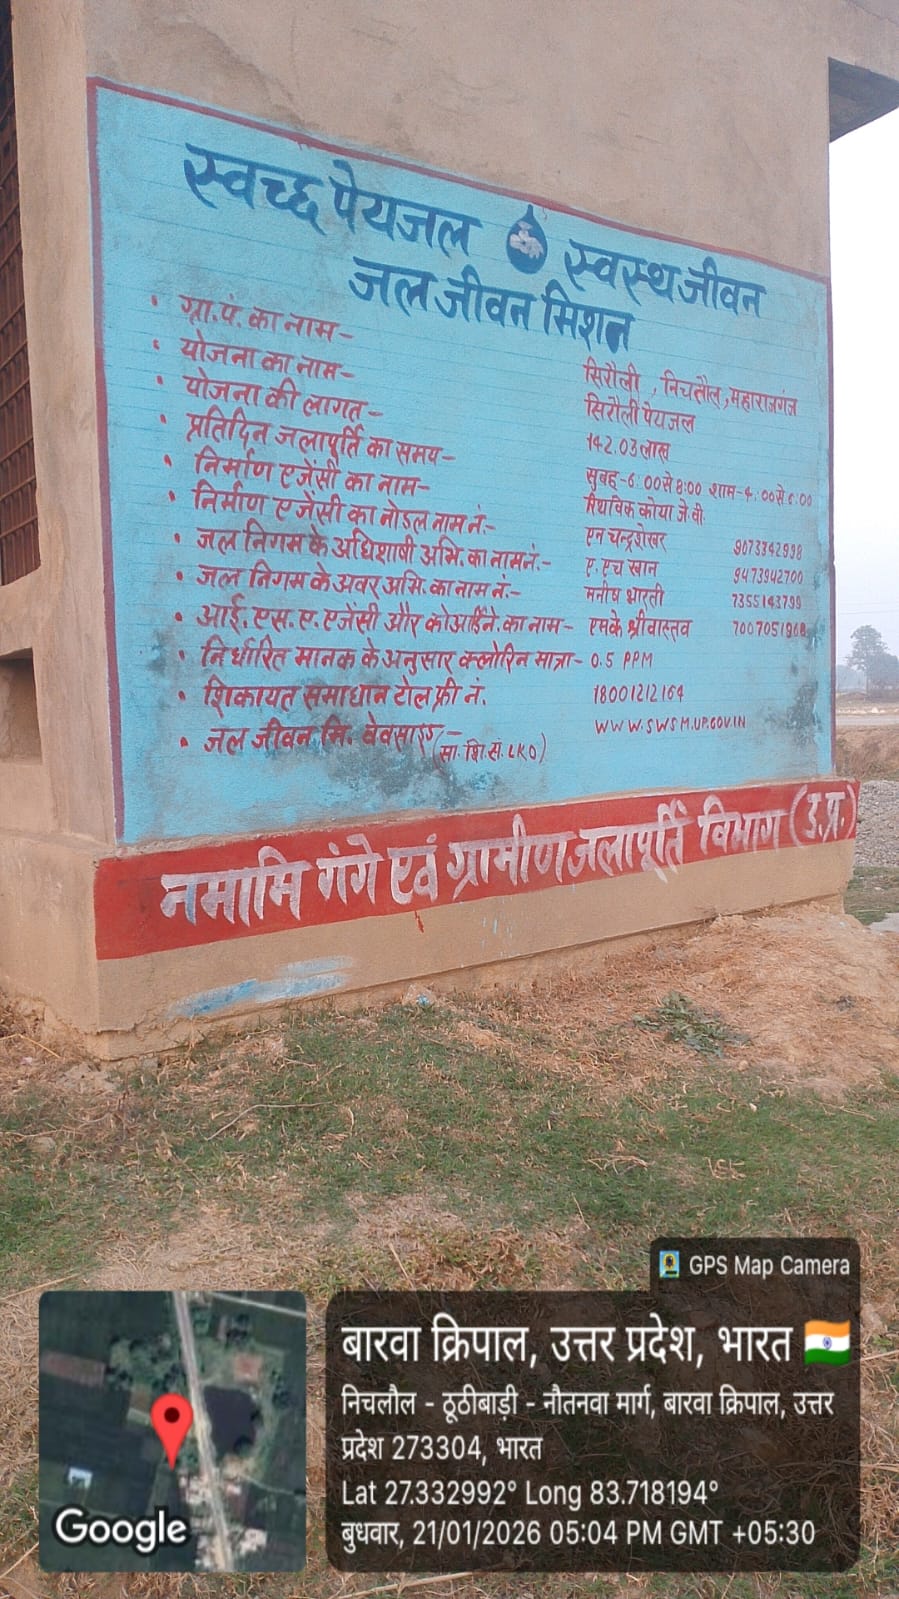 स्वच्छ पेयजल स्वस्थ जीवन
जल जीवन मिशन
• ग्रा.पं. का नाम- सिरौली , निचलौल, महाराजगंज
• योजना का नाम- सिरौली पेयजल
• योजना की लागत- 142.03 लाख
• प्रतिदिन जलापूर्ति का समय- सुबह-6:00 से 8:00 शाम-4:00 से 6:00
• निर्माण एजेंसी का नाम- रिथविक कोया जे.वी.
• निर्माण एजेंसी का नोडल नाम नं.- एन चन्द्रशेखर 9073342998
• जल निगम के अधिशाषी अभि. का नाम नं.- ए. एच खान 9473942700
• जल निगम के अवर अभि. का नाम नं.- मनीष भारती 7355143799
• आई. एस. ए. एजेंसी और कोआर्डिने. का नाम- एमके श्रीवास्तव 7007051908
• निर्धारित मानक के अनुसार क्लोरिन मात्रा- 0.5 PPM
• शिकायत समाधान टोल फ्री नं. 18001212164
• जल जीवन मि. वेवसाइड- WWW.SWSM.UP.GOV.IN
(सा. शि. सं. LKO)
नमामि गंगे एवं ग्रामीण जलापूर्ति विभाग (उ.प्र.)
GPS Map Camera
बारवा क्रिपाल, उत्तर प्रदेश, भारत
निचलौल - ठूठीबाड़ी - नौतनवा मार्ग, बारवा क्रिपाल, उत्तर
प्रदेश 273304, भारत
Lat 27.332992° Long 83.718194°
बुधवार, 21/01/2026 05:04 PM GMT +05:30
Google